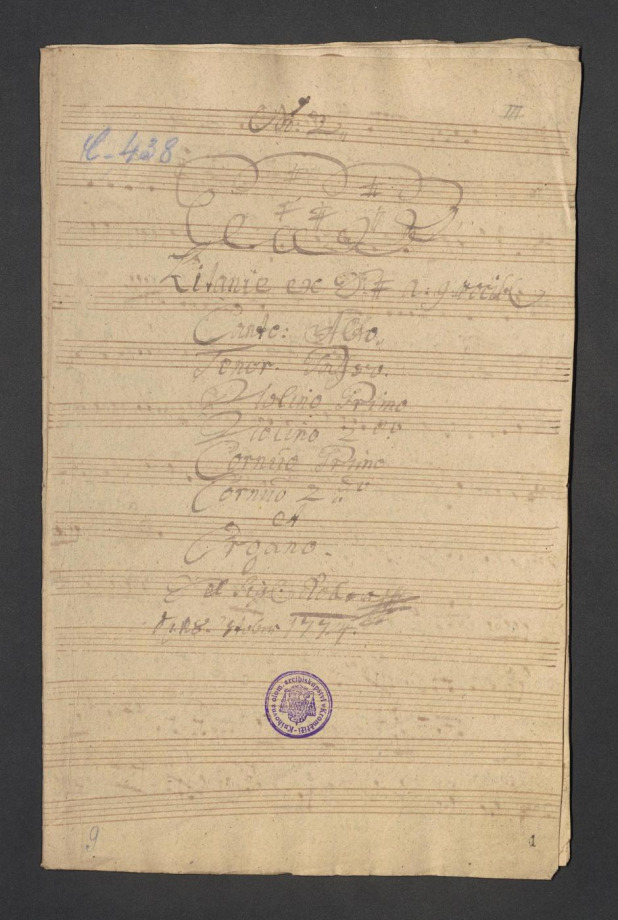 III
No: 2
C. 438
Litanie ex D#
Canto: Alto.
Tenor. Basso.
Violino Primo
Violino 2do
Cornuo Primo
Cornuo 2do
et
Organo.
Del Sig:
1774.
Knihovna olom. arcibiskupství v Kroměříži
9
1